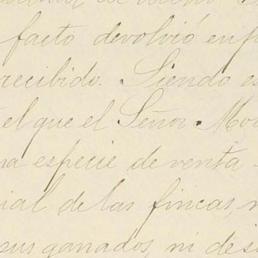 facto devolvió en p
recibido. Siendo es
el que el Señor Mor
na especie de venta
ial de las fincas, n
sus ganados, ni de s